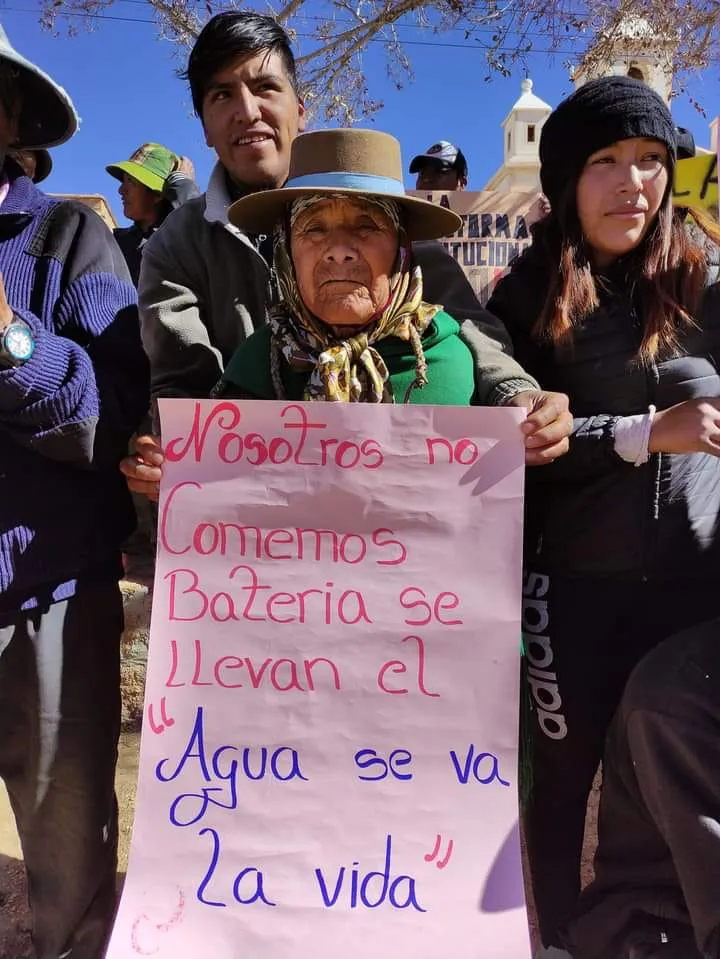 LA REFORMA
Nosotros no
Comemos
Bateria se
LLevan el
"Agua se va
La vida"
adidas